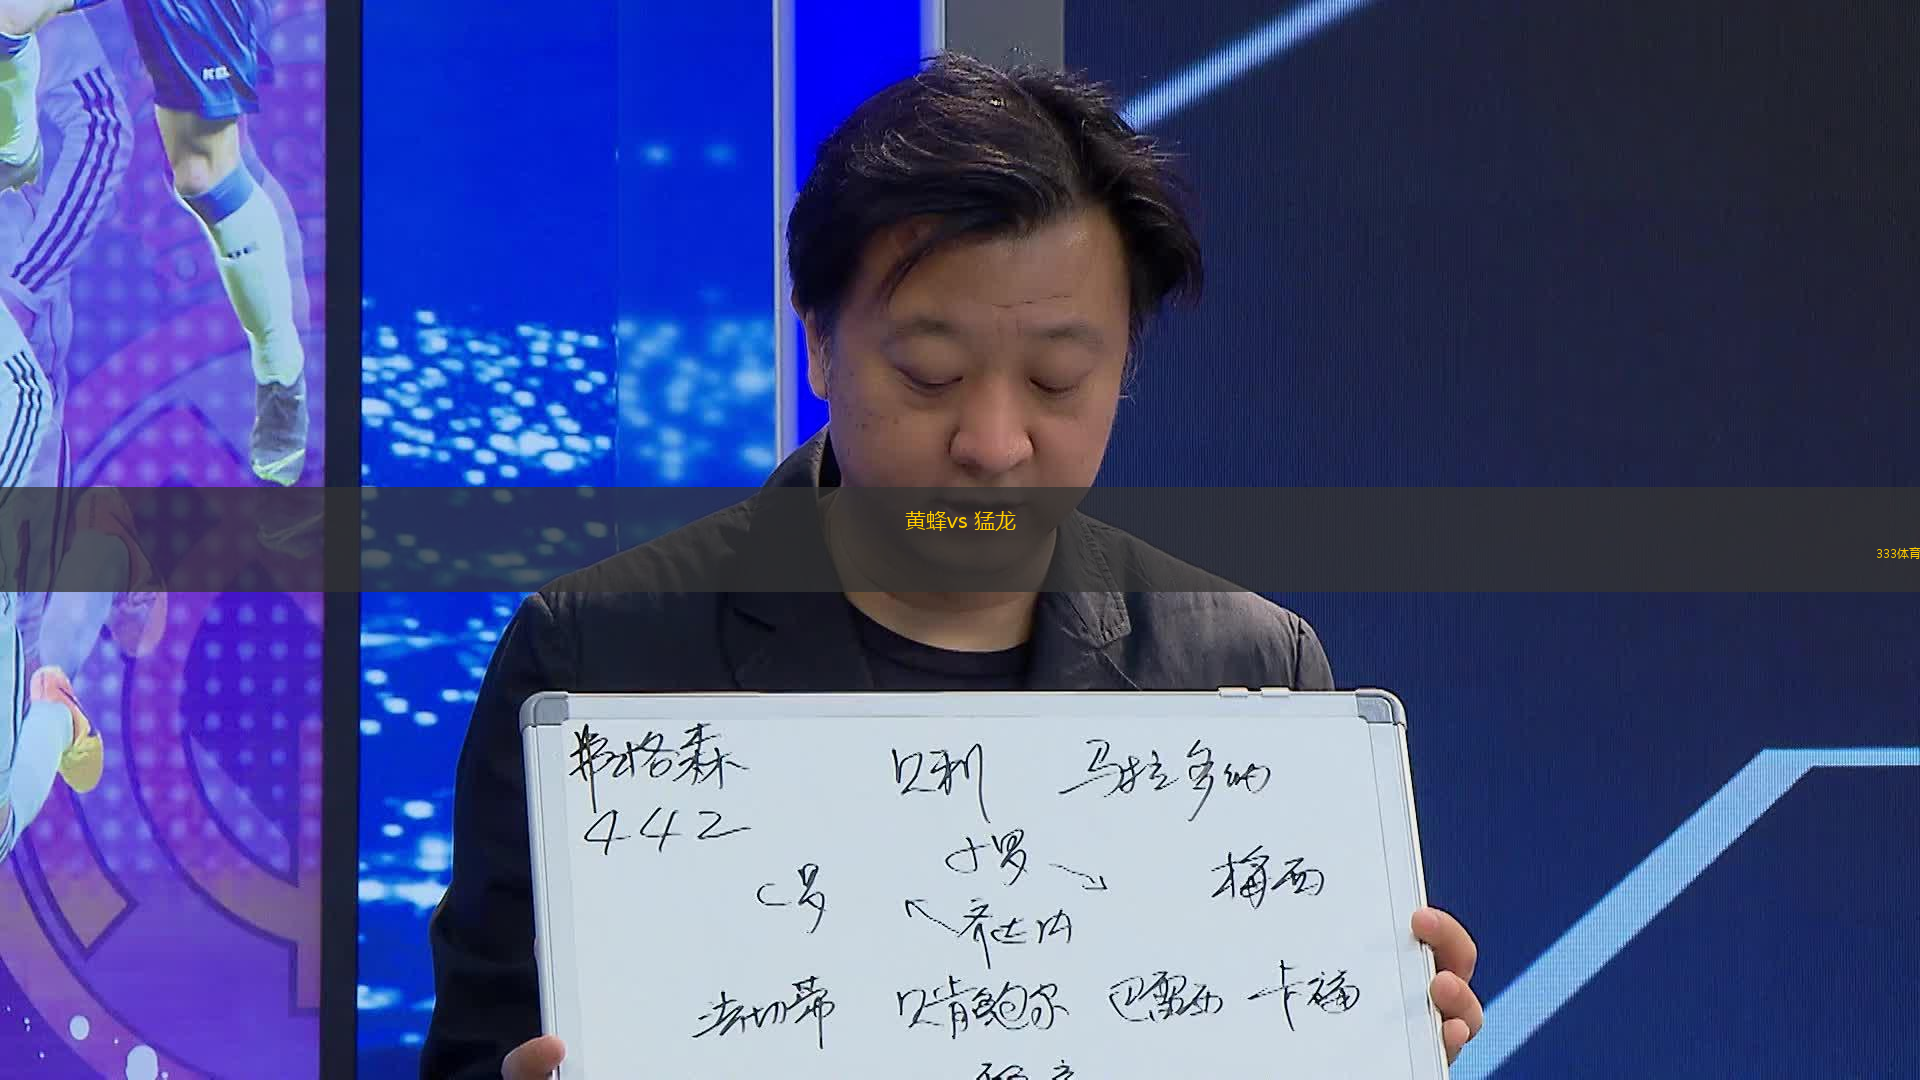 黄蜂vs 猛龙
333体育
弗格森 贝利 马拉多纳
442
小罗
C罗 梅西
齐达内
法切蒂 贝肯鲍尔 巴雷西 卡福